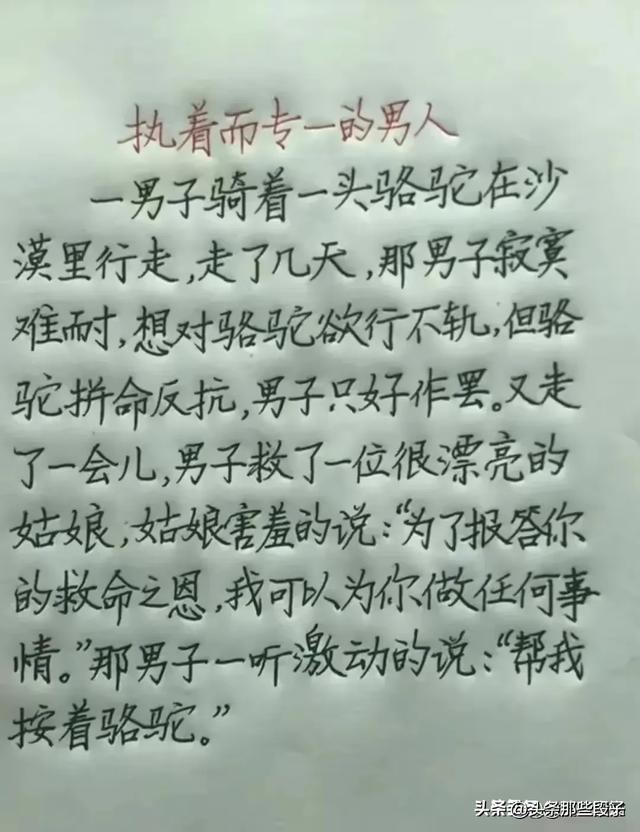 执着而专一的男人
一男子骑着一头骆驼在沙
漠里行走,走了几天,那男子寂寞
难而耐,想对骆驼欲行不轨,但骆
驼拼命反抗,男子只好作罢。又走
了一会儿,男子救了一位很漂亮的
姑娘,姑娘害羞的说:“为了报答你
的救命之恩,我可以为你做任何事
情。”那男子一听激动的说:“帮我
按着骆驼。”
@头条那些段子